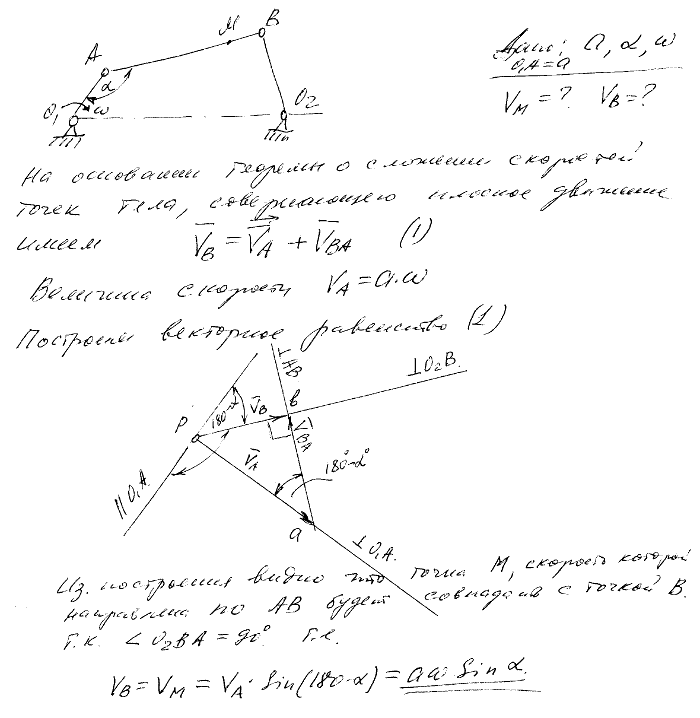 M B
A
α
O₁ ω O₂
Дано: a, α, ω
O₁A=a
V_M = ? V_B = ?
На основании теоремы о сложении скоростей
точек тела, совершающего плоское движение
имеем V̄_B = V̄_A + V̄_BA (1)
Величина скорости V_A = a·ω
Построим векторное равенство (1)
⊥AB ⊥O₂B.
180-α V̄_B в
P V̄_BA
V̄_A 180°-α°
∥O₁A.
a ⊥O₁A.
Из построения видно что точка M, скорость которой
направлена по AB будет совпадать с точкой B.
т.к. ∠O₂BA = 90° т.е.
V_B = V_M = V_A · Sin(180-α) = aω Sin α.